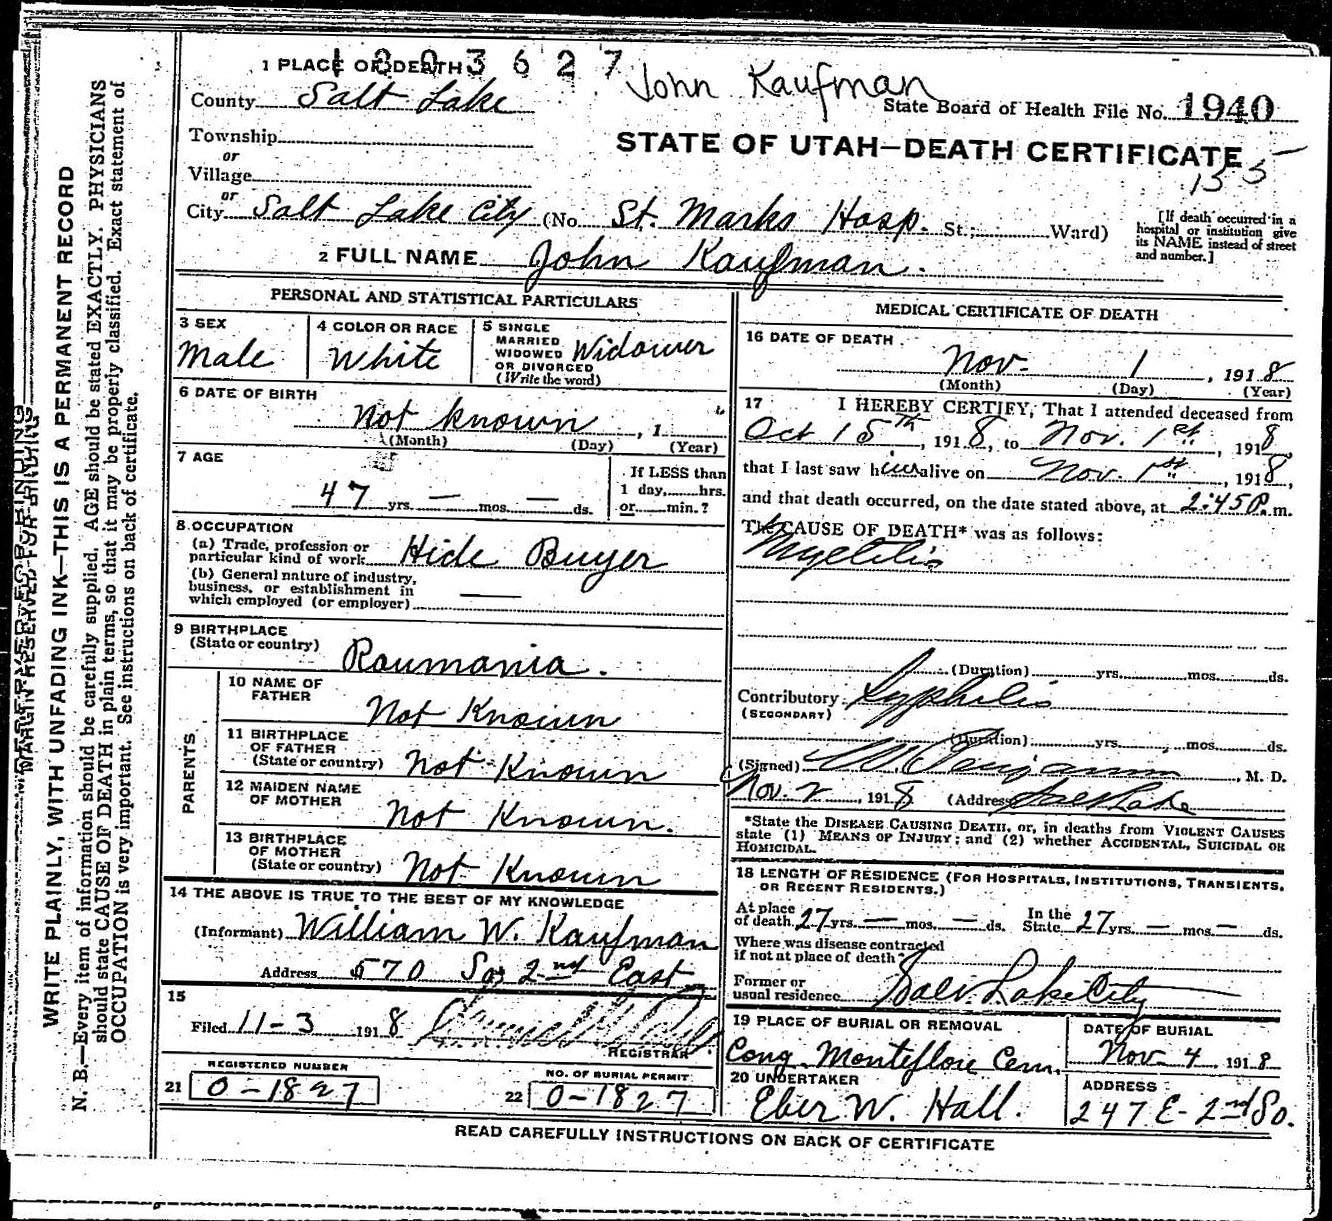 1 PLACE OF DEATH 1203627
John Kaufman
County Salt Lake
State Board of Health File No. 1940
Township
or
Village
STATE OF UTAH—DEATH CERTIFICATE
or
City Salt Lake City (No. St. Marks Hosp. St.; Ward)
[If death occurred in a
hospital or institution give
its NAME instead of street
and number.]
2 FULL NAME John Kaufman.
PERSONAL AND STATISTICAL PARTICULARS
3 SEX
Male
4 COLOR OR RACE
White
5 SINGLE
MARRIED
WIDOWED
OR DIVORCED
(Write the word)
Widower
6 DATE OF BIRTH
Not known , 1
(Month) (Day) (Year)
7 AGE
47 yrs. — mos. — ds.
If LESS than
1 day, hrs.
or min.?
8 OCCUPATION
(a) Trade, profession or
particular kind of work Hide Buyer
(b) General nature of industry,
business, or establishment in
which employed (or employer)
9 BIRTHPLACE
(State or country)
Roumania.
PARENTS
10 NAME OF
FATHER
Not Known
11 BIRTHPLACE
OF FATHER
(State or country) Not Known
12 MAIDEN NAME
OF MOTHER
Not Known.
13 BIRTHPLACE
OF MOTHER
(State or country) Not Known
14 THE ABOVE IS TRUE TO THE BEST OF MY KNOWLEDGE
(Informant) William W. Kaufman
Address 570 So 2nd East
15
Filed 11-3 1918
REGISTRAR
REGISTERED NUMBER
21 0-1827
NO. OF BURIAL PERMIT
22 0-1827
MEDICAL CERTIFICATE OF DEATH
16 DATE OF DEATH
Nov. 1 , 1918
(Month) (Day) (Year)
17 I HEREBY CERTIFY, That I attended deceased from
Oct 15th, 1918, to Nov. 1st, 1918
that I last saw him alive on Nov. 1st, 1918,
and that death occurred, on the date stated above, at 2:45 P. m.
The CAUSE OF DEATH* was as follows:
Myelitis
(Duration) yrs. mos. ds.
Contributory Syphilis
(SECONDARY)
(Duration) yrs. mos. ds.
(Signed) , M. D.
Nov. 2, 1918 (Address) Salt Lake
*State the DISEASE CAUSING DEATH, or, in deaths from VIOLENT CAUSES
state (1) MEANS OF INJURY; and (2) whether ACCIDENTAL, SUICIDAL OR
HOMICIDAL.
18 LENGTH OF RESIDENCE (FOR HOSPITALS, INSTITUTIONS, TRANSIENTS,
OR RECENT RESIDENTS.)
At place
of death 27 yrs. — mos. — ds.
In the
State 27 yrs. — mos. — ds.
Where was disease contracted
if not at place of death?
Former or
usual residence Salt Lake City
19 PLACE OF BURIAL OR REMOVAL
Cong. Montefiore Cem.
DATE OF BURIAL
Nov 4 1918
20 UNDERTAKER
Eber W. Hall.
ADDRESS
247 E- 2nd So.
READ CAREFULLY INSTRUCTIONS ON BACK OF CERTIFICATE
MARGIN RESERVED FOR BINDING
WRITE PLAINLY, WITH UNFADING INK—THIS IS A PERMANENT RECORD
N. B.—Every item of information should be carefully supplied. AGE should be stated EXACTLY. PHYSICIANS
should state CAUSE OF DEATH in plain terms, so that it may be properly classified. Exact statement of
OCCUPATION is very important. See instructions on back of certificate.